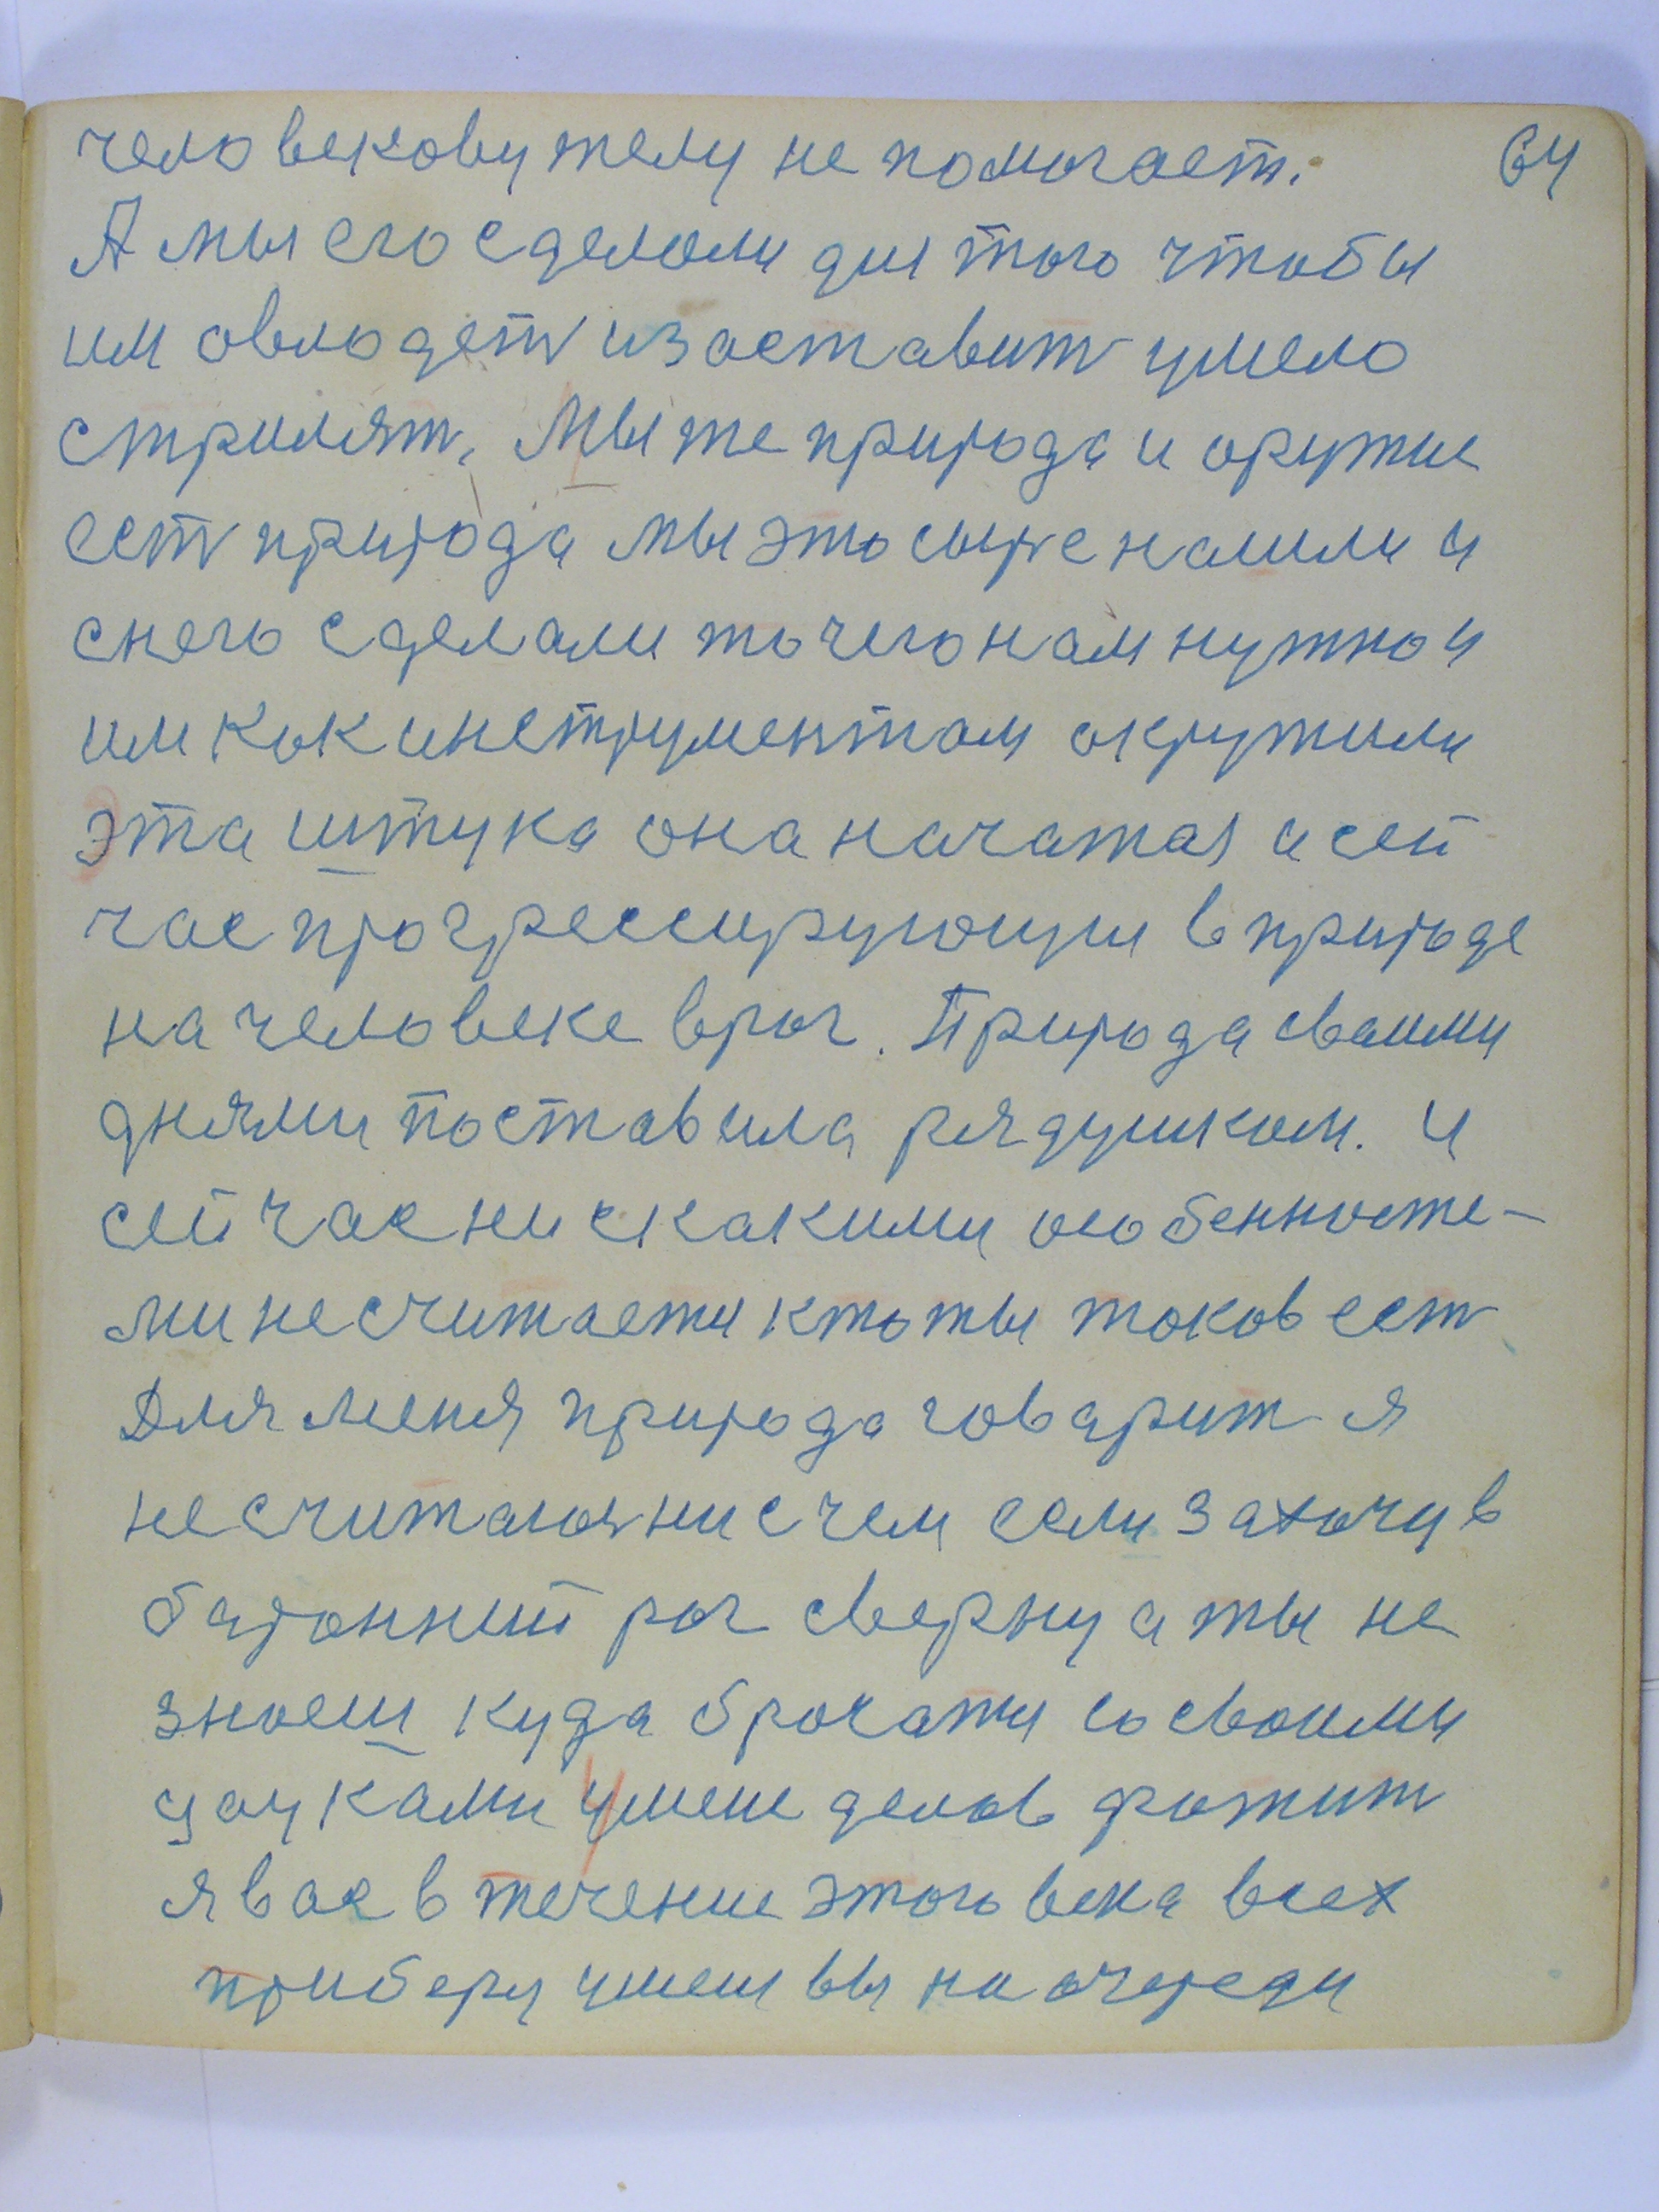 человекову телу не помогает. 64
А мы его сделали для того чтобы
им овлодеть и заставить умело
стрилять. Мы же природа и оружие
есть природа мы это сырье нашли и
снего сделали то чего нам нужно и
им как инструментом окружили
эта штука она начатая а сей
час прогрессирующи в природе
на человеке враг. Природа своими
днями поставила рядушком. и
сейчас ни с какими особенносте-
ми не считаети кто ты таков есть
Для меня природа говарит я
не считаюя ни с чем если захочу в
баронний рог сверну а ты не
знаеш куда брасати со своими
уочками умеш делов
я вас в течение этого века всех
приберу умеш вы на очереди